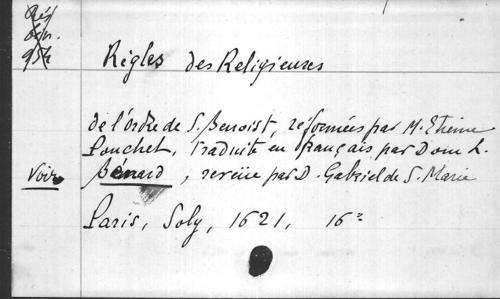 Rés
954
Règles des Religieuses
de l'ordre de S. Benoist, reformées par M. Etienne
Pouchet, traduite en français par Dom L.
Voir Bénard, reveüe par D. Gabriel de S. Marie
Paris, Soly, 1621, 16º